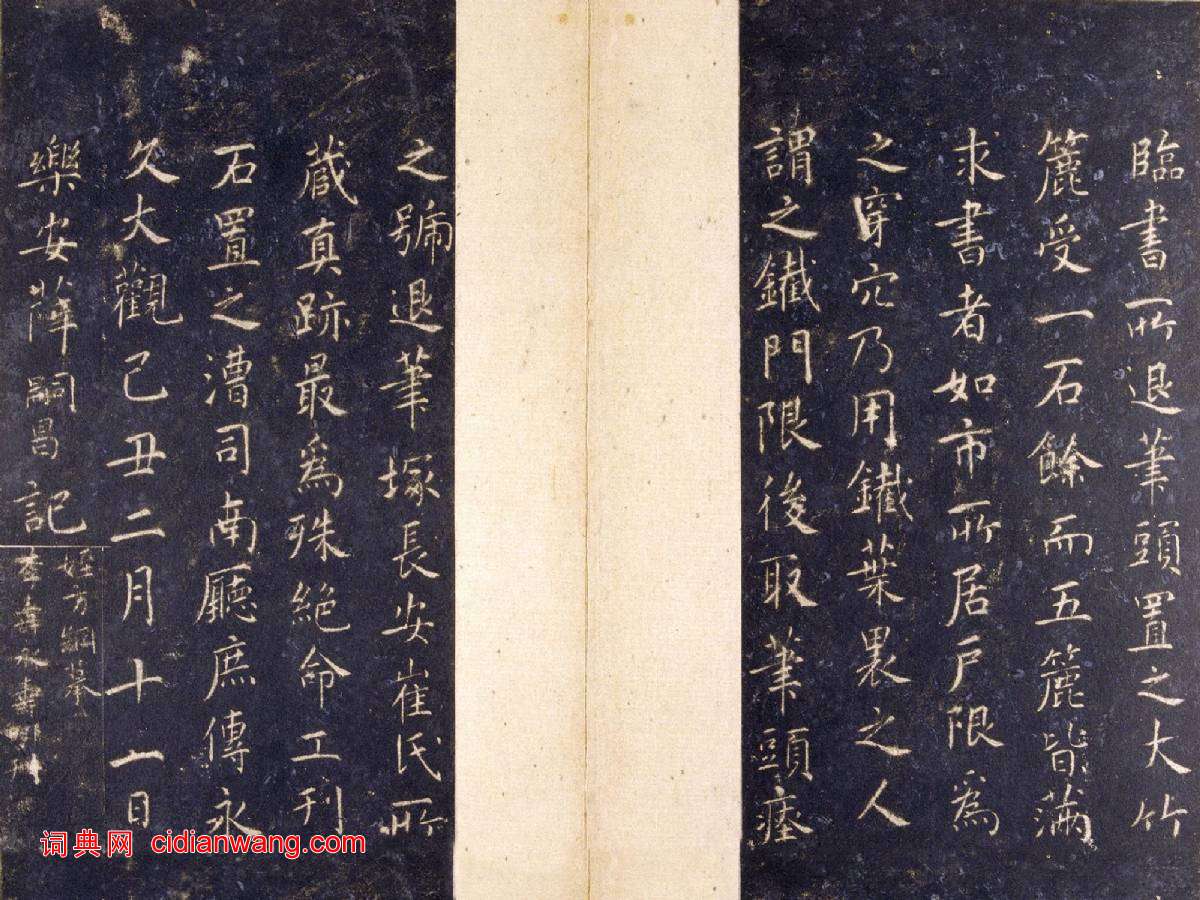 臨書所退筆頭置之大竹
簏受一石餘而五簏皆滿
求書者如市所居戶限為
之穿穴乃用鐵葉裹之人
謂之鐵門限後取筆頭瘞
之號退筆塚長安崔氏所
藏真跡最為殊絕命工刊
石置之漕司南廳庶傳永
久大觀己丑二月十一日
樂安薛嗣昌記
姪方綱摹
李壽永壽明刊
词典网 cidianwang.com